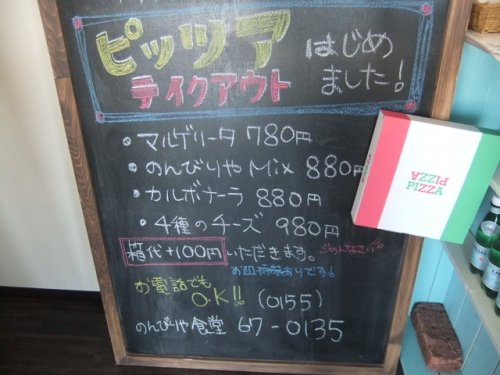 ピッツァ はじめ
テイクアウト ました!
・マルゲリータ 780円
・のんびりやMix 880円
・カルボナーラ 880円
・4種のチーズ 980円
箱代+100円 いただきます。ごめんなさい
お皿持参ありです!
お電話でも
O.K!! (0155)
のんびりや食堂 67-0135
PIZZA
PIZZA